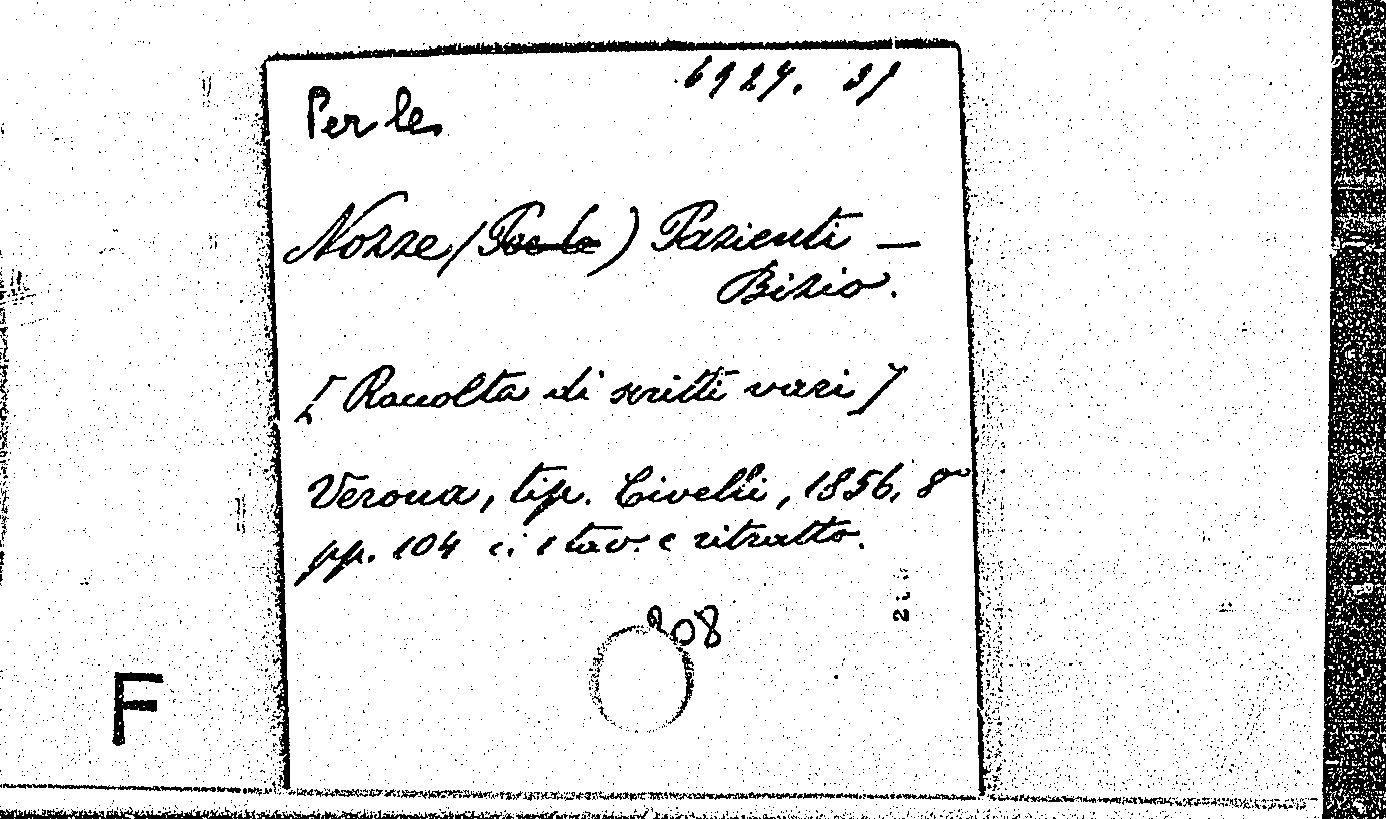 6927. 31
Per le
Nozze (Per le) Pazienti —
Bizio.
[Raccolta di scritti vari]
Verona, tip. Civelli, 1856, 8º
pp. 104 c. 1 tav. e ritratto.
208
F